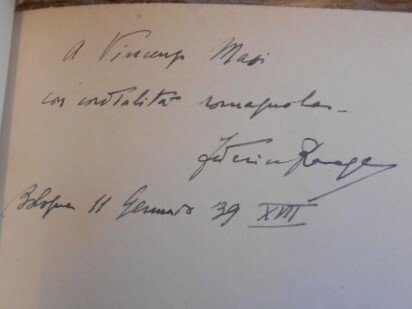 A Vincenzo Masi
con cordialità romagnola
Bologna 11 Gennaio 39 XVII